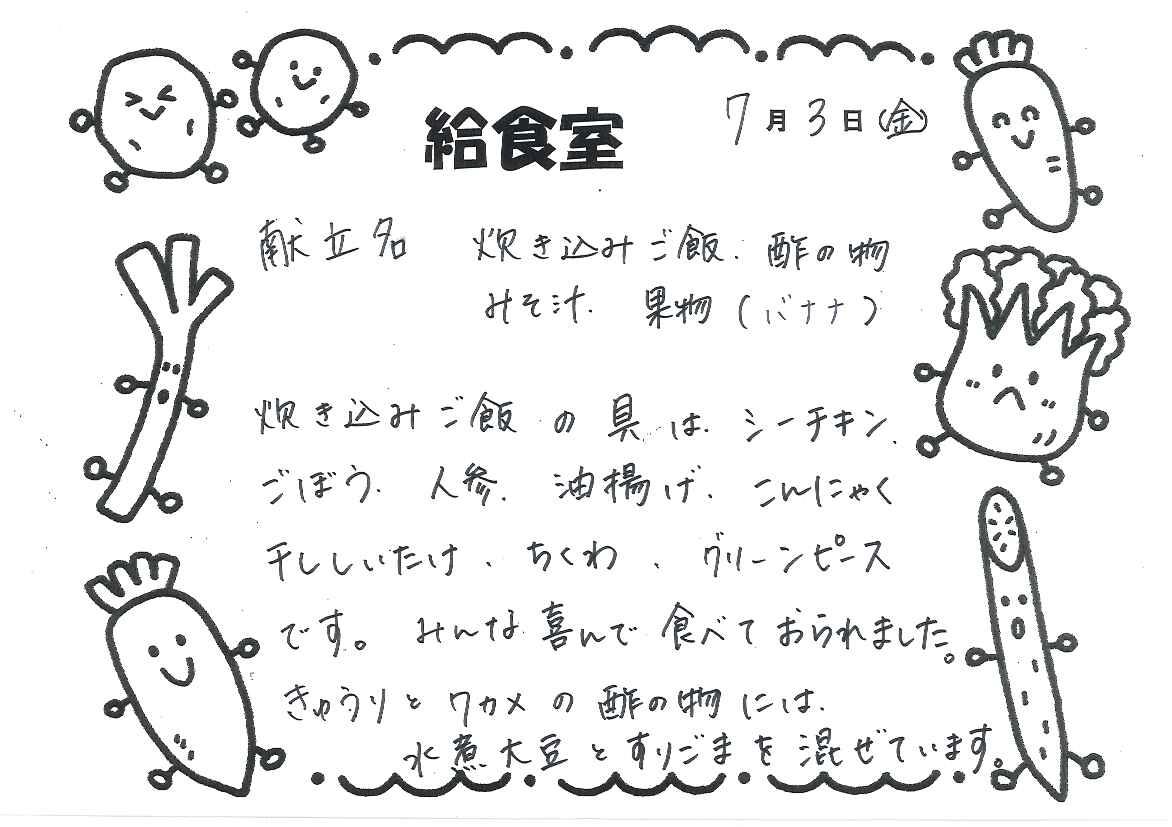 給食室
7月3日(金)
献立名 炊き込みご飯、酢の物
みそ汁、果物(バナナ)
炊き込みご飯の具は、シーチキン、
ごぼう、人参、油揚げ、こんにゃく
干ししいたけ、ちくわ、グリーンピース
です。みんな喜んで食べておられました。
きゅうりとワカメの酢の物には、
水煮大豆とすりごまを混ぜています。